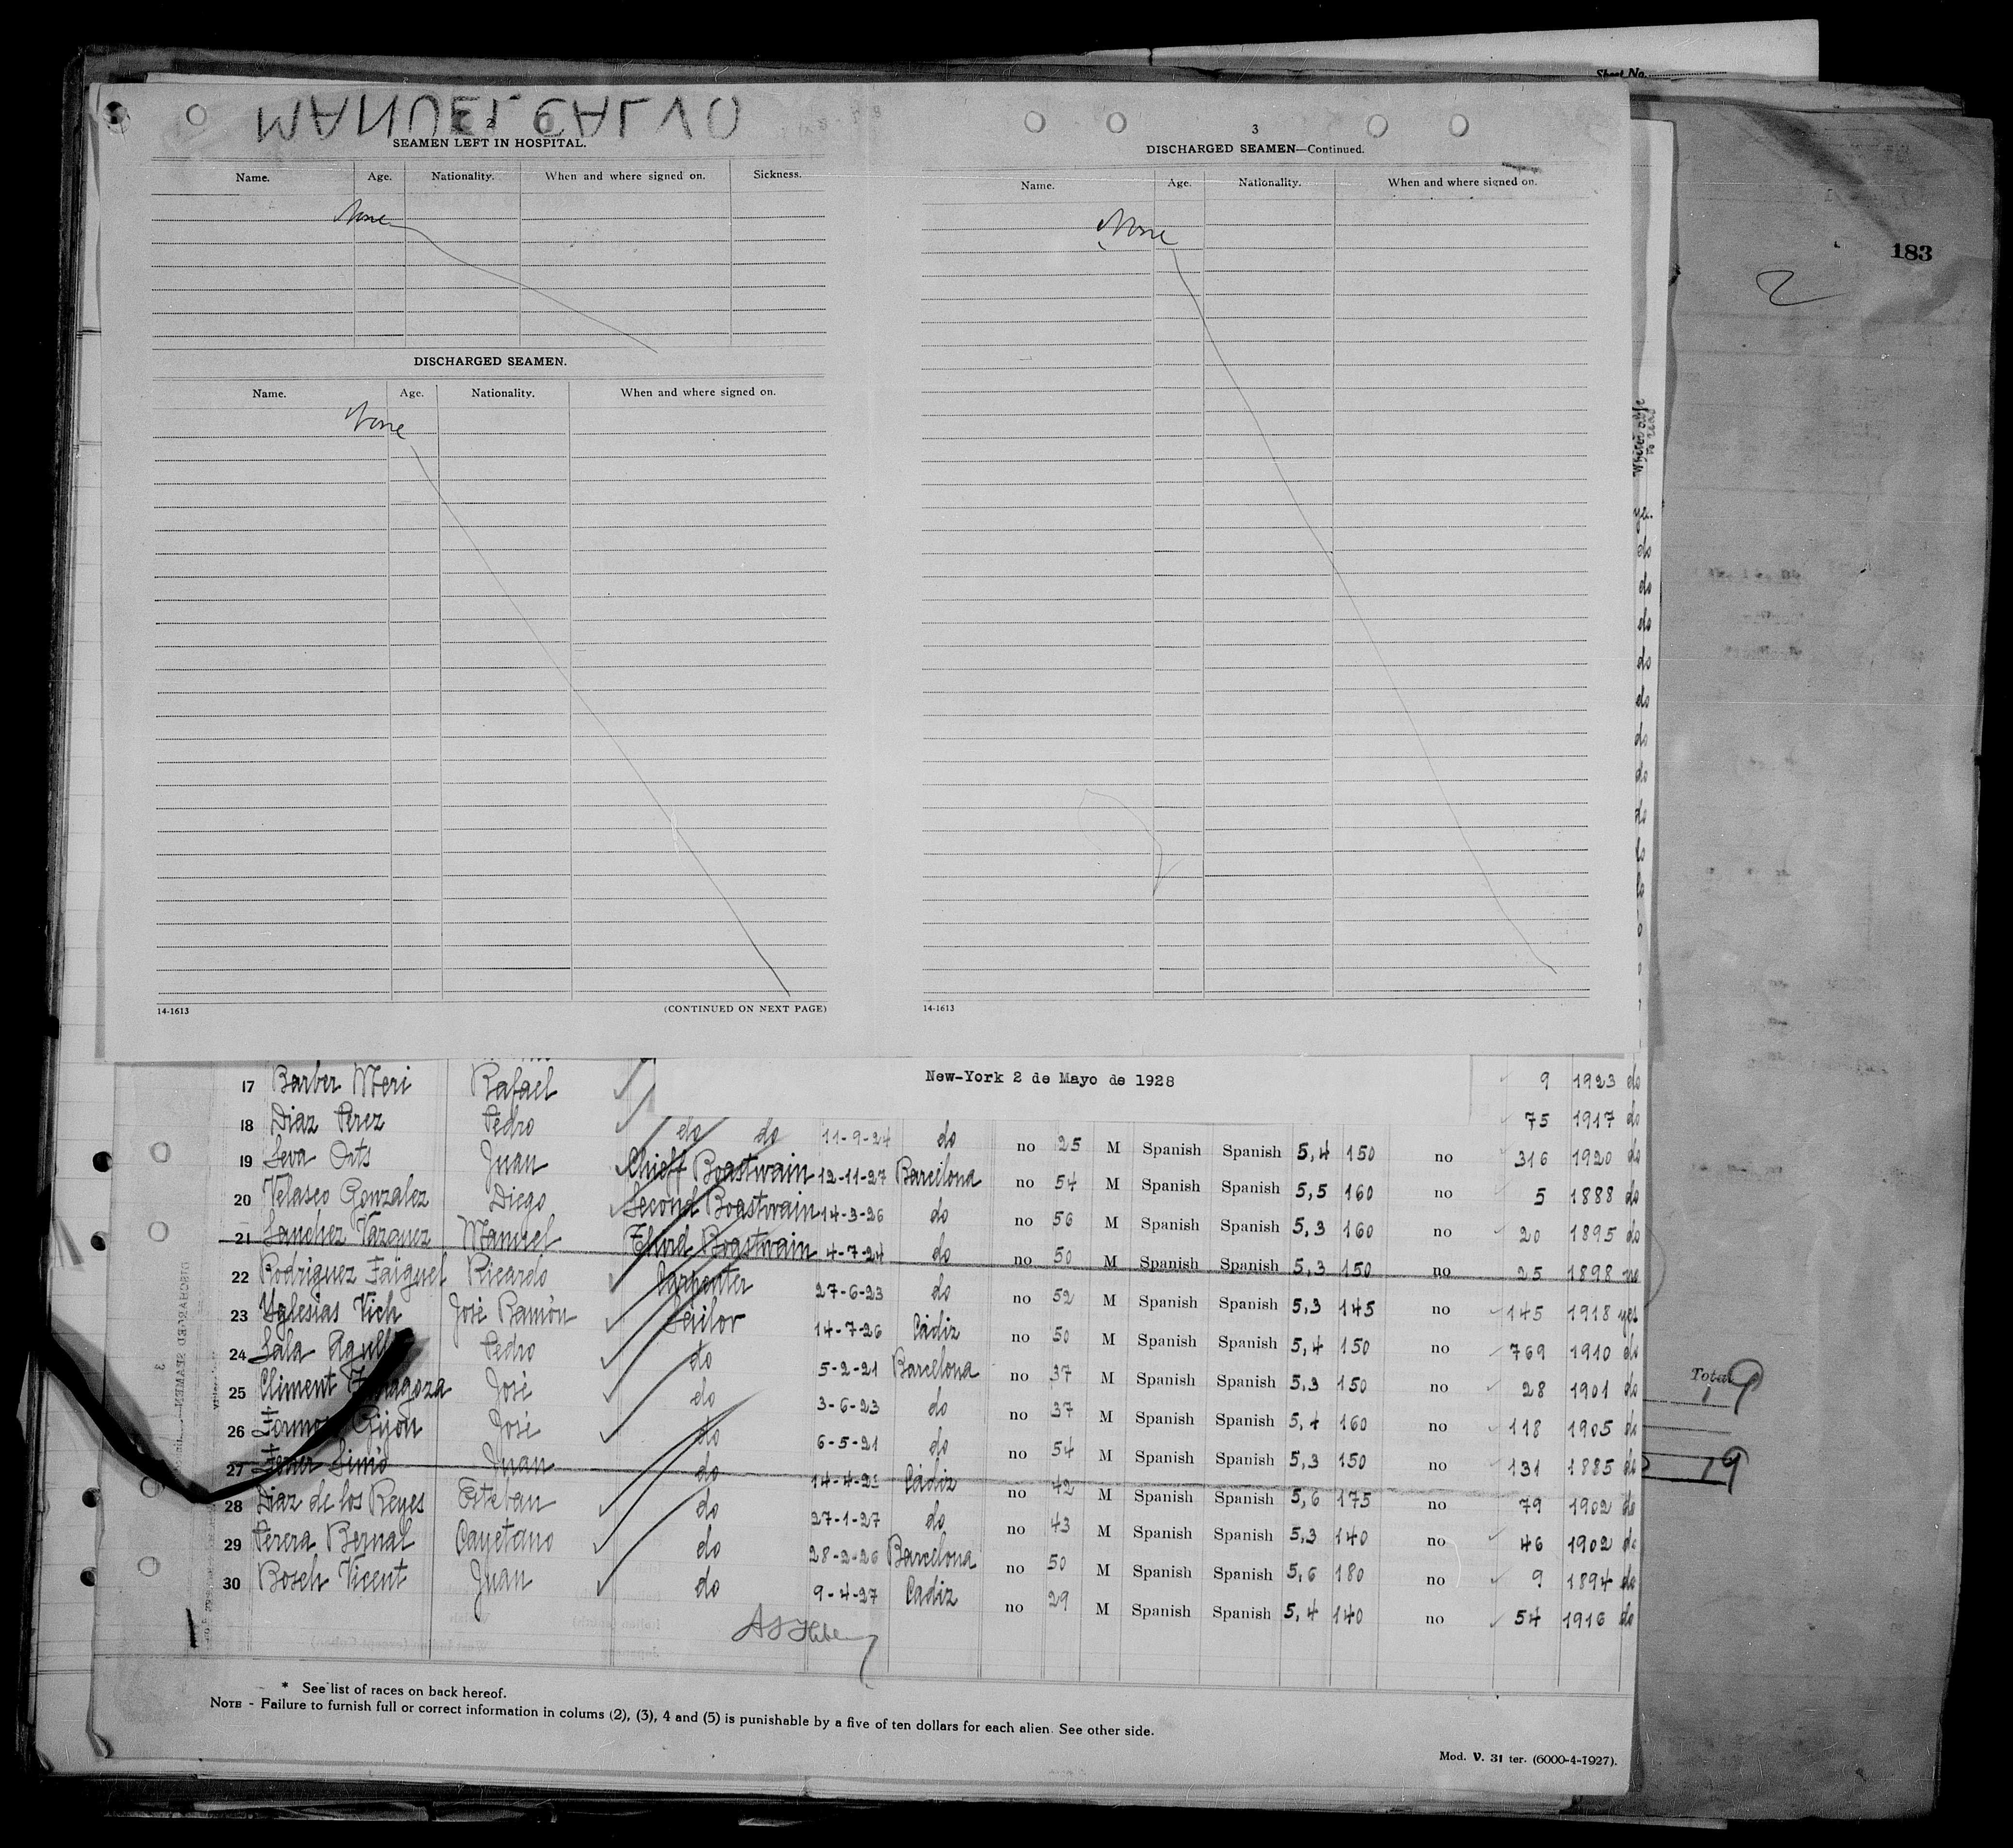 Sheet No.
183
2
MANUEL CALVO
2
SEAMEN LEFT IN HOSPITAL.
Name. Age. Nationality. When and where signed on. Sickness.
None
DISCHARGED SEAMEN.
Name. Age. Nationality. When and where signed on.
None
14-1613 (CONTINUED ON NEXT PAGE)
3
DISCHARGED SEAMEN—Continued.
Name. Age. Nationality. When and where signed on.
None
14-1613
New-York 2 de Mayo de 1928
17 Barber Meri Rafael 9 1923 do
18 Diaz Perez Pedro do do 11-9-24 do 75 1917 do
19 Seva Orts Juan Chieff Boastwain 12-11-27 Barcelona no 25 M Spanish Spanish 5,4 150 no 316 1920 do
20 Velasco Gonzalez Diego Second Boastwain 14-3-26 do no 54 M Spanish Spanish 5,5 160 no 5 1888 do
21 Sanchez Vazquez Manuel Third Boastwain 4-7-24 do no 56 M Spanish Spanish 5,3 160 no 20 1895 do
22 Rodriguez Faiguel Ricardo Carpenter 27-6-23 do no 50 M Spanish Spanish 5,3 150 no 25 1898 no
23 Yglesias Vich José Ramón Sailor 14-7-26 Cádiz no 52 M Spanish Spanish 5,3 145 no 145 1918 yes
24 Sala Pedro do 5-2-21 Barcelona no 50 M Spanish Spanish 5,4 150 no 769 1910 do
25 Climent José do 3-6-23 do no 37 M Spanish Spanish 5,3 150 no 28 1901 do
26 Gijon José do 6-5-21 do no 37 M Spanish Spanish 5,4 160 no 118 1905 do
27 Simó Juan do Cádiz no 54 M Spanish Spanish 5,3 150 no 131 1885 do
28 Diaz de los Reyes Esteban do 27-1-27 do no 42 M Spanish Spanish 5,6 175 no 79 1902 do
29 Perera Bernal Cayetano do 28-2-26 Barcelona no 43 M Spanish Spanish 5,3 140 no 46 1902 do
30 Bosch Vicent Juan do 9-4-27 Cadiz no 50 M Spanish Spanish 5,6 180 no 9 1894 do
no 29 M Spanish Spanish 5,4 140 no 54 1916 do
Total 19
19
* See list of races on back hereof.
NOTE - Failure to furnish full or correct information in colums (2), (3), 4 and (5) is punishable by a five of ten dollars for each alien. See other side.
Mod. V. 31 ter. (6000-4-1927).